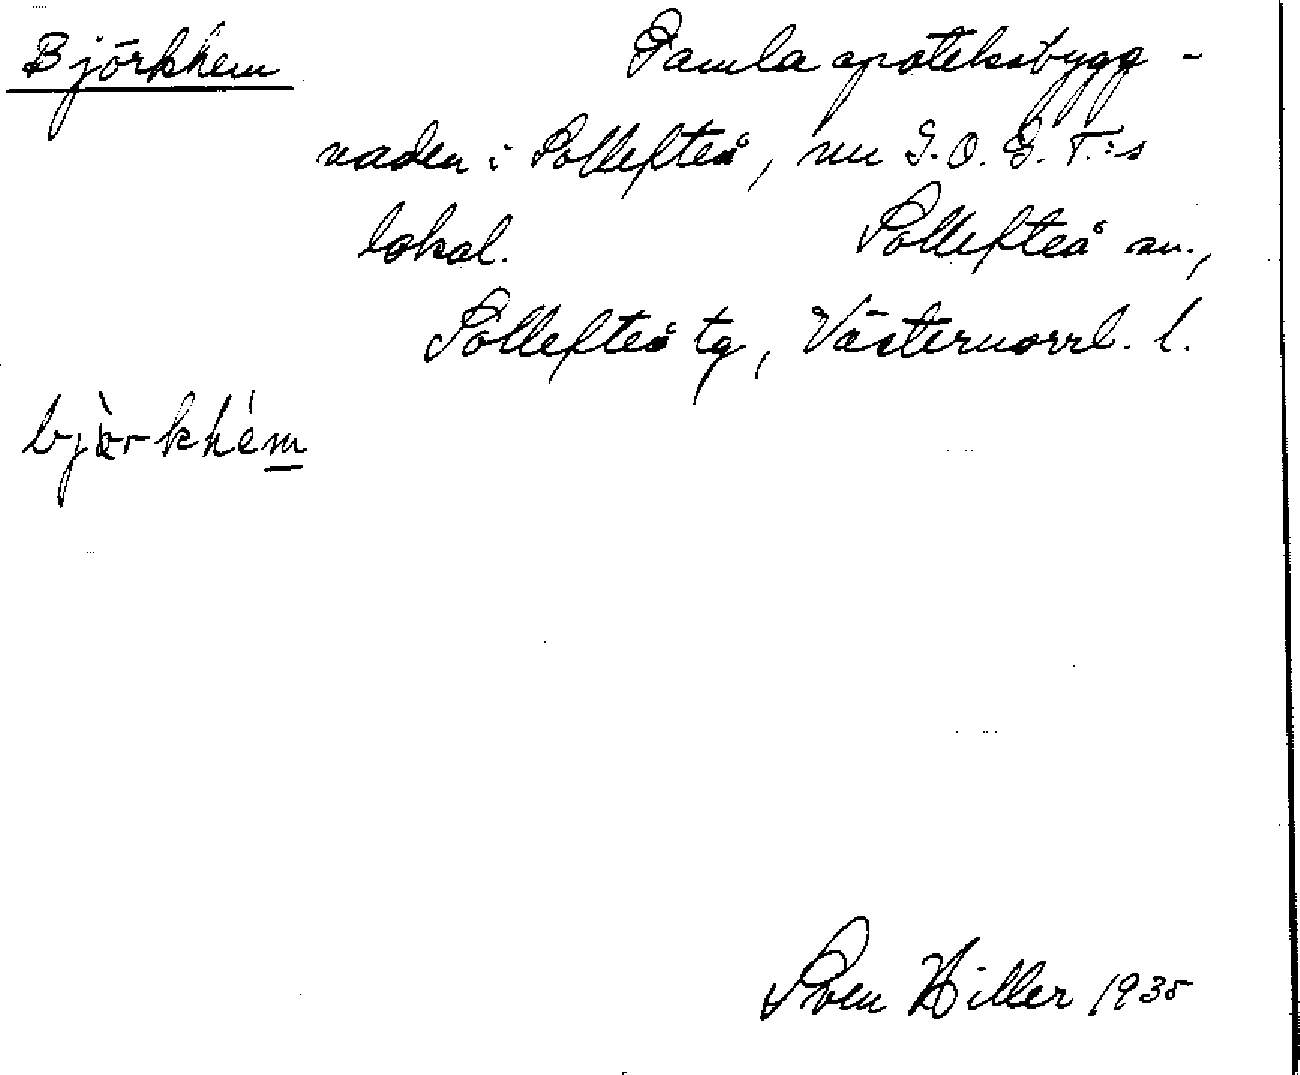 Björkhem Gamla apoteksbygg-
naden i Sollefteå, nu I.O.G.T.:s
lokal. Sollefteå sn.,
Sollefteå tg, Västernorrl. l.
bjö̀rkhém
Sven Hiller 1935